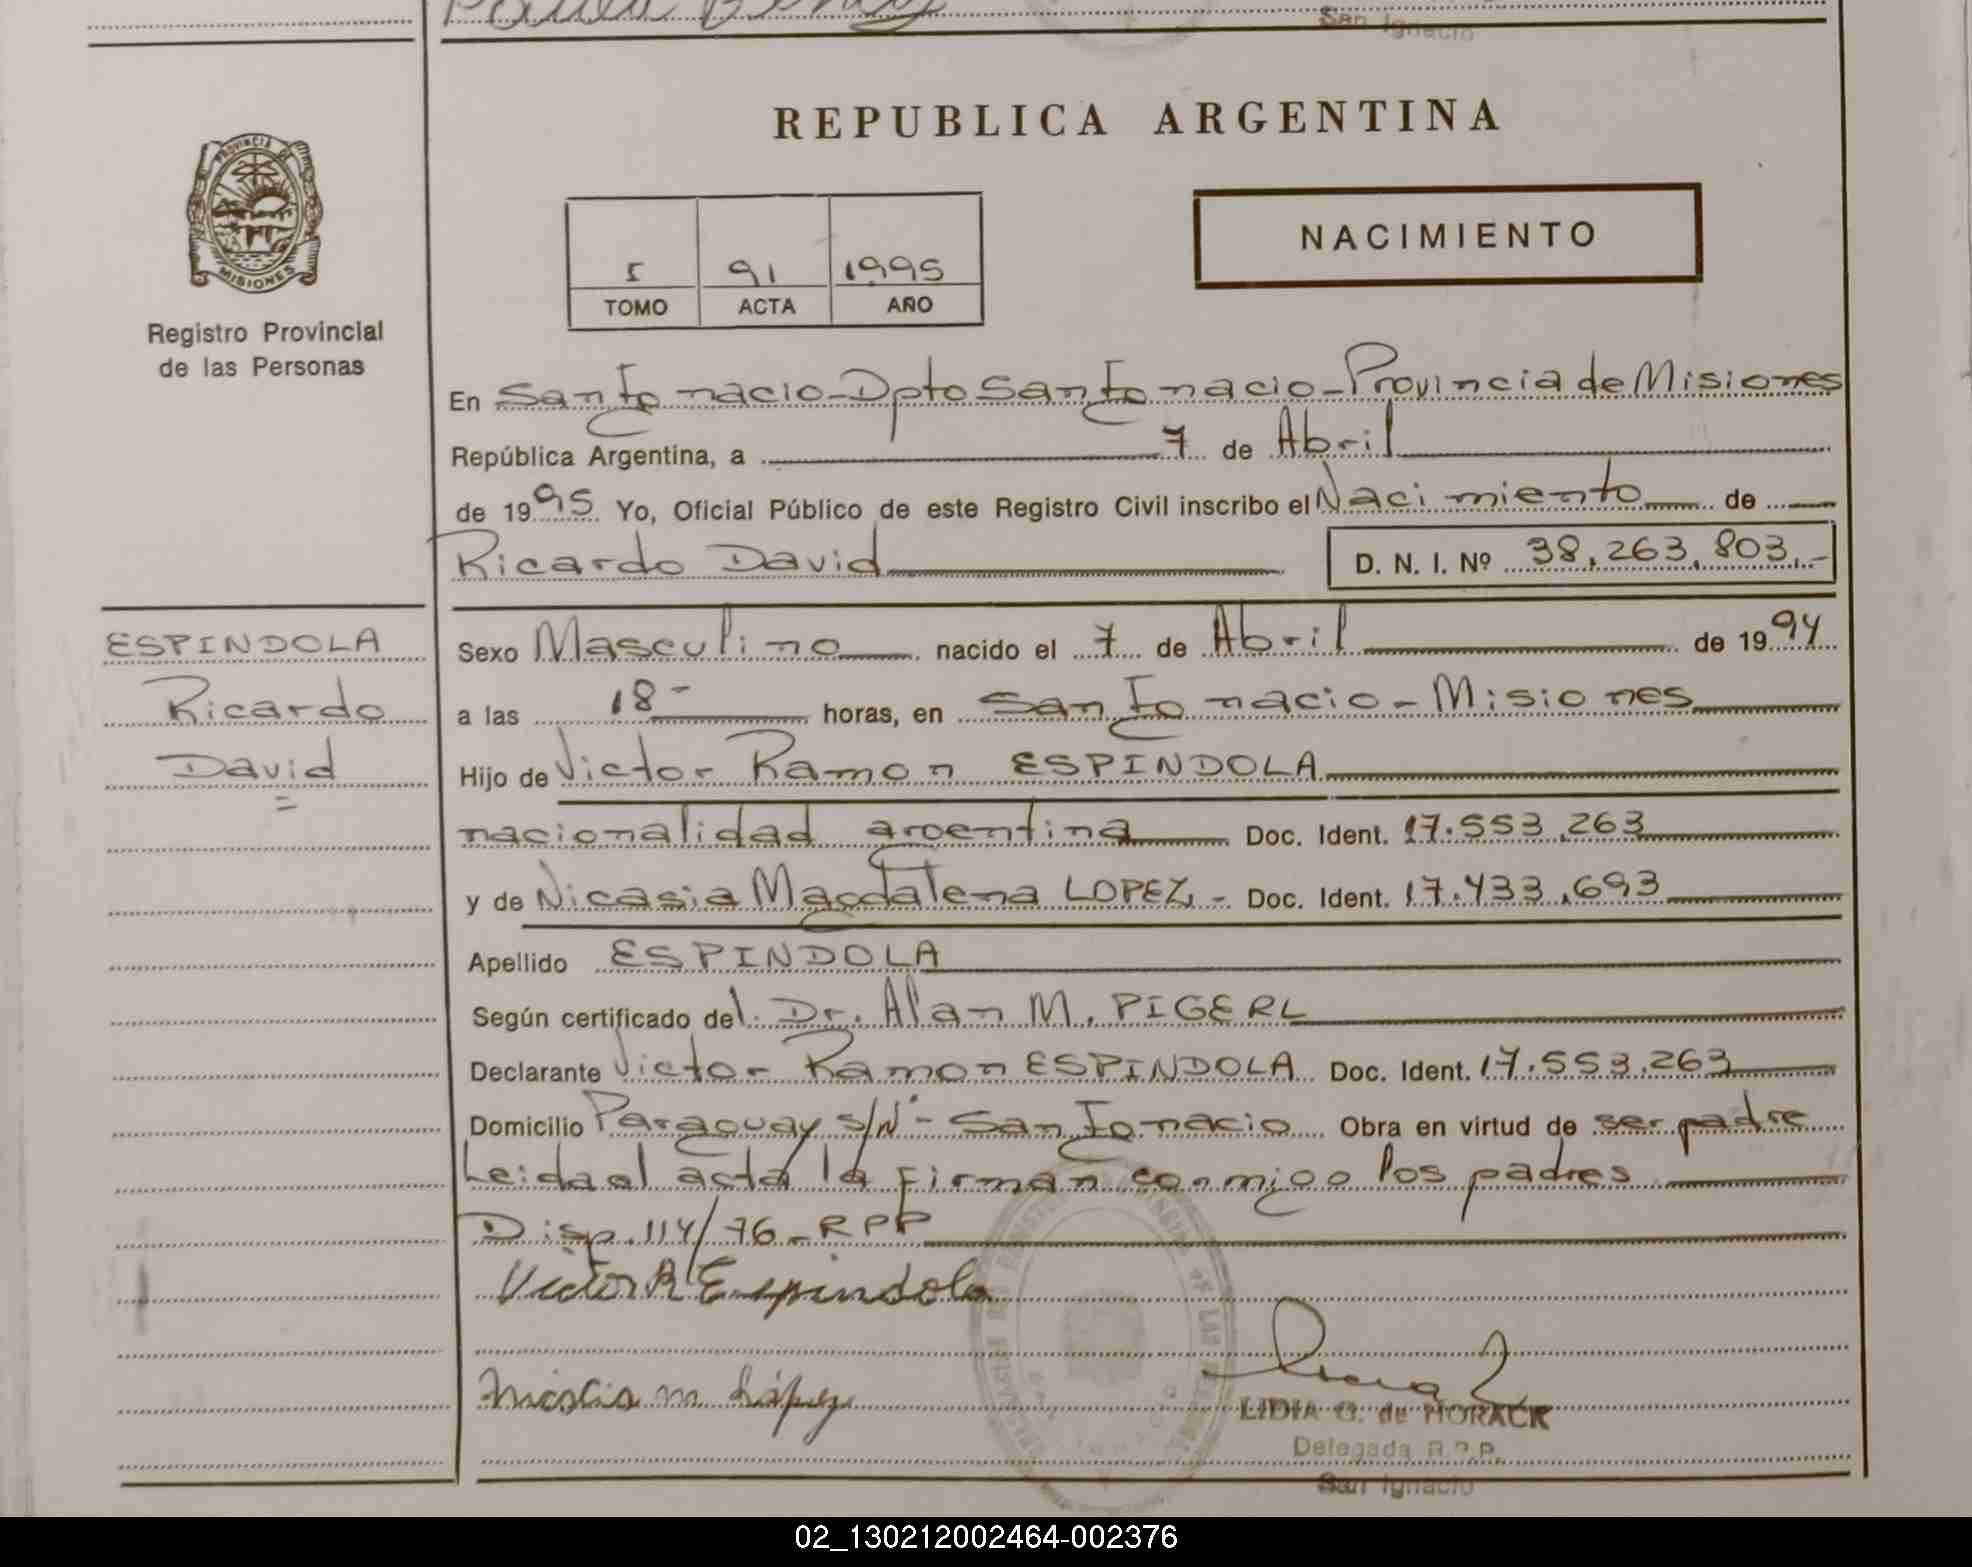 San Ignacio
REPUBLICA ARGENTINA
PROVINCIA DE
MISIONES
Registro Provincial
de las Personas
I 91 1995
TOMO ACTA AÑO
NACIMIENTO
En San Ignacio - Dpto San Ignacio - Provincia de Misiones
República Argentina, a 7 de Abril
de 1995 Yo, Oficial Público de este Registro Civil inscribo el Nacimiento de
Ricardo David D. N. I. Nº 38,263,803.-
ESPINDOLA
Ricardo
David
Sexo Masculino nacido el 7 de Abril de 1994
a las 18- horas, en San Ignacio - Misiones
Hijo de Victor Ramon ESPINDOLA
nacionalidad argentina Doc. Ident. 17.553.263
y de Nicasia Magdalena LOPEZ.- Doc. Ident. 17.433.693
Apellido ESPINDOLA
Según certificado del Dr. Alan M. PIGERL
Declarante Victor Ramon ESPINDOLA Doc. Ident. 17.553.263
Domicilio Paraguay s/Nº - San Ignacio Obra en virtud de ser padre
Leida el acta la firman conmigo los padres
Disp. 114/76 - RPP
Victor R Espindola
M. López
LIDIA G. de HORACK
Delegada R.P.P.
San Ignacio
02_130212002464-002376